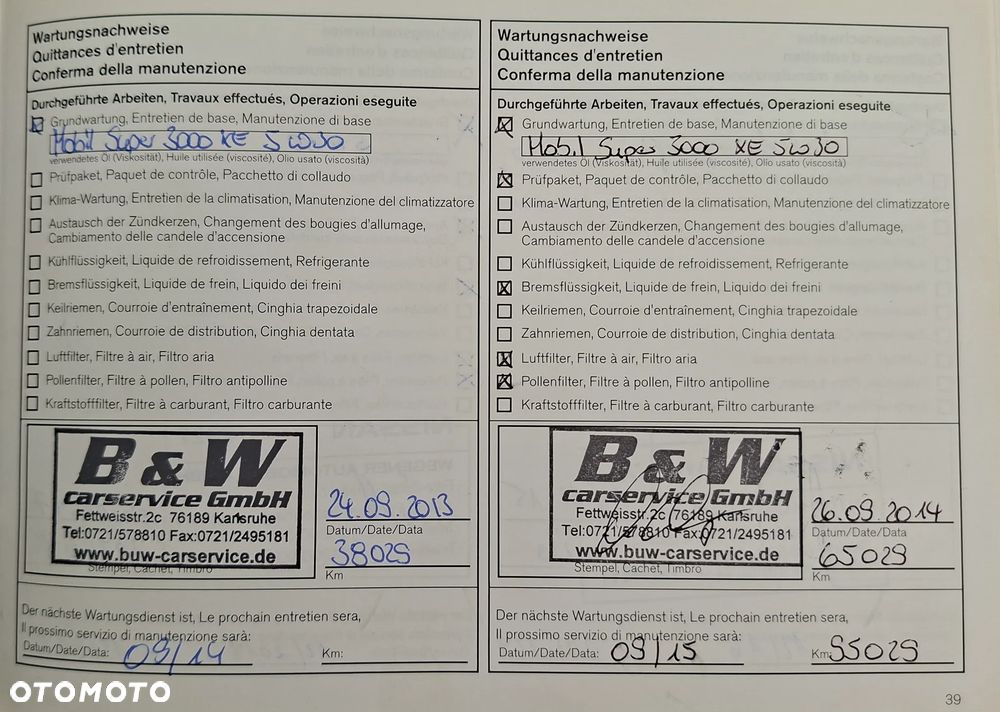 Wartungsnachweise
Quittances d'entretien
Conferma della manutenzione
Durchgeführte Arbeiten, Travaux effectués, Operazioni eseguite
Grundwartung, Entretien de base, Manutenzione di base
Mobil Super 3000 XE 5W30
verwendetes Öl (Viskosität), Huile utilisée (viscosité), Olio usato (viscosità)
Prüfpaket, Paquet de contrôle, Pacchetto di collaudo
Klima-Wartung, Entretien de la climatisation, Manutenzione del climatizzatore
Austausch der Zündkerzen, Changement des bougies d'allumage,
Cambiamento delle candele d'accensione
Kühlflüssigkeit, Liquide de refroidissement, Refrigerante
Bremsflüssigkeit, Liquide de frein, Liquido dei freini
Keilriemen, Courroie d'entraînement, Cinghia trapezoidale
Zahnriemen, Courroie de distribution, Cinghia dentata
Luftfilter, Filtre à air, Filtro aria
Pollenfilter, Filtre à pollen, Filtro antipolline
Kraftstofffilter, Filtre à carburant, Filtro carburante
B & W
carservice GmbH
Fettweisstr.2c 76189 Karlsruhe
Tel:0721/578810 Fax:0721/2495181
www.buw-carservice.de
Stempel, Cachet, Timbro
24.09.2013
Datum/Date/Data
38029
Km
Der nächste Wartungsdienst ist, Le prochain entretien sera,
Il prossimo servizio di manutenzione sarà:
Datum/Date/Data: 09/14 Km:
Wartungsnachweise
Quittances d'entretien
Conferma della manutenzione
Durchgeführte Arbeiten, Travaux effectués, Operazioni eseguite
Grundwartung, Entretien de base, Manutenzione di base
Mobil Super 3000 XE 5W30
verwendetes Öl (Viskosität), Huile utilisée (viscosité), Olio usato (viscosità)
Prüfpaket, Paquet de contrôle, Pacchetto di collaudo
Klima-Wartung, Entretien de la climatisation, Manutenzione del climatizzatore
Austausch der Zündkerzen, Changement des bougies d'allumage,
Cambiamento delle candele d'accensione
Kühlflüssigkeit, Liquide de refroidissement, Refrigerante
Bremsflüssigkeit, Liquide de frein, Liquido dei freini
Keilriemen, Courroie d'entraînement, Cinghia trapezoidale
Zahnriemen, Courroie de distribution, Cinghia dentata
Luftfilter, Filtre à air, Filtro aria
Pollenfilter, Filtre à pollen, Filtro antipolline
Kraftstofffilter, Filtre à carburant, Filtro carburante
B & W
carservice GmbH
Fettweisstr.2c 76189 Karlsruhe
Tel:0721/578810 Fax:0721/2495181
www.buw-carservice.de
Stempel, Cachet, Timbro
26.09.2014
Datum/Date/Data
65029
Km
Der nächste Wartungsdienst ist, Le prochain entretien sera,
Il prossimo servizio di manutenzione sarà:
Datum/Date/Data: 09/15 Km: 95029
39
OTOMOTO